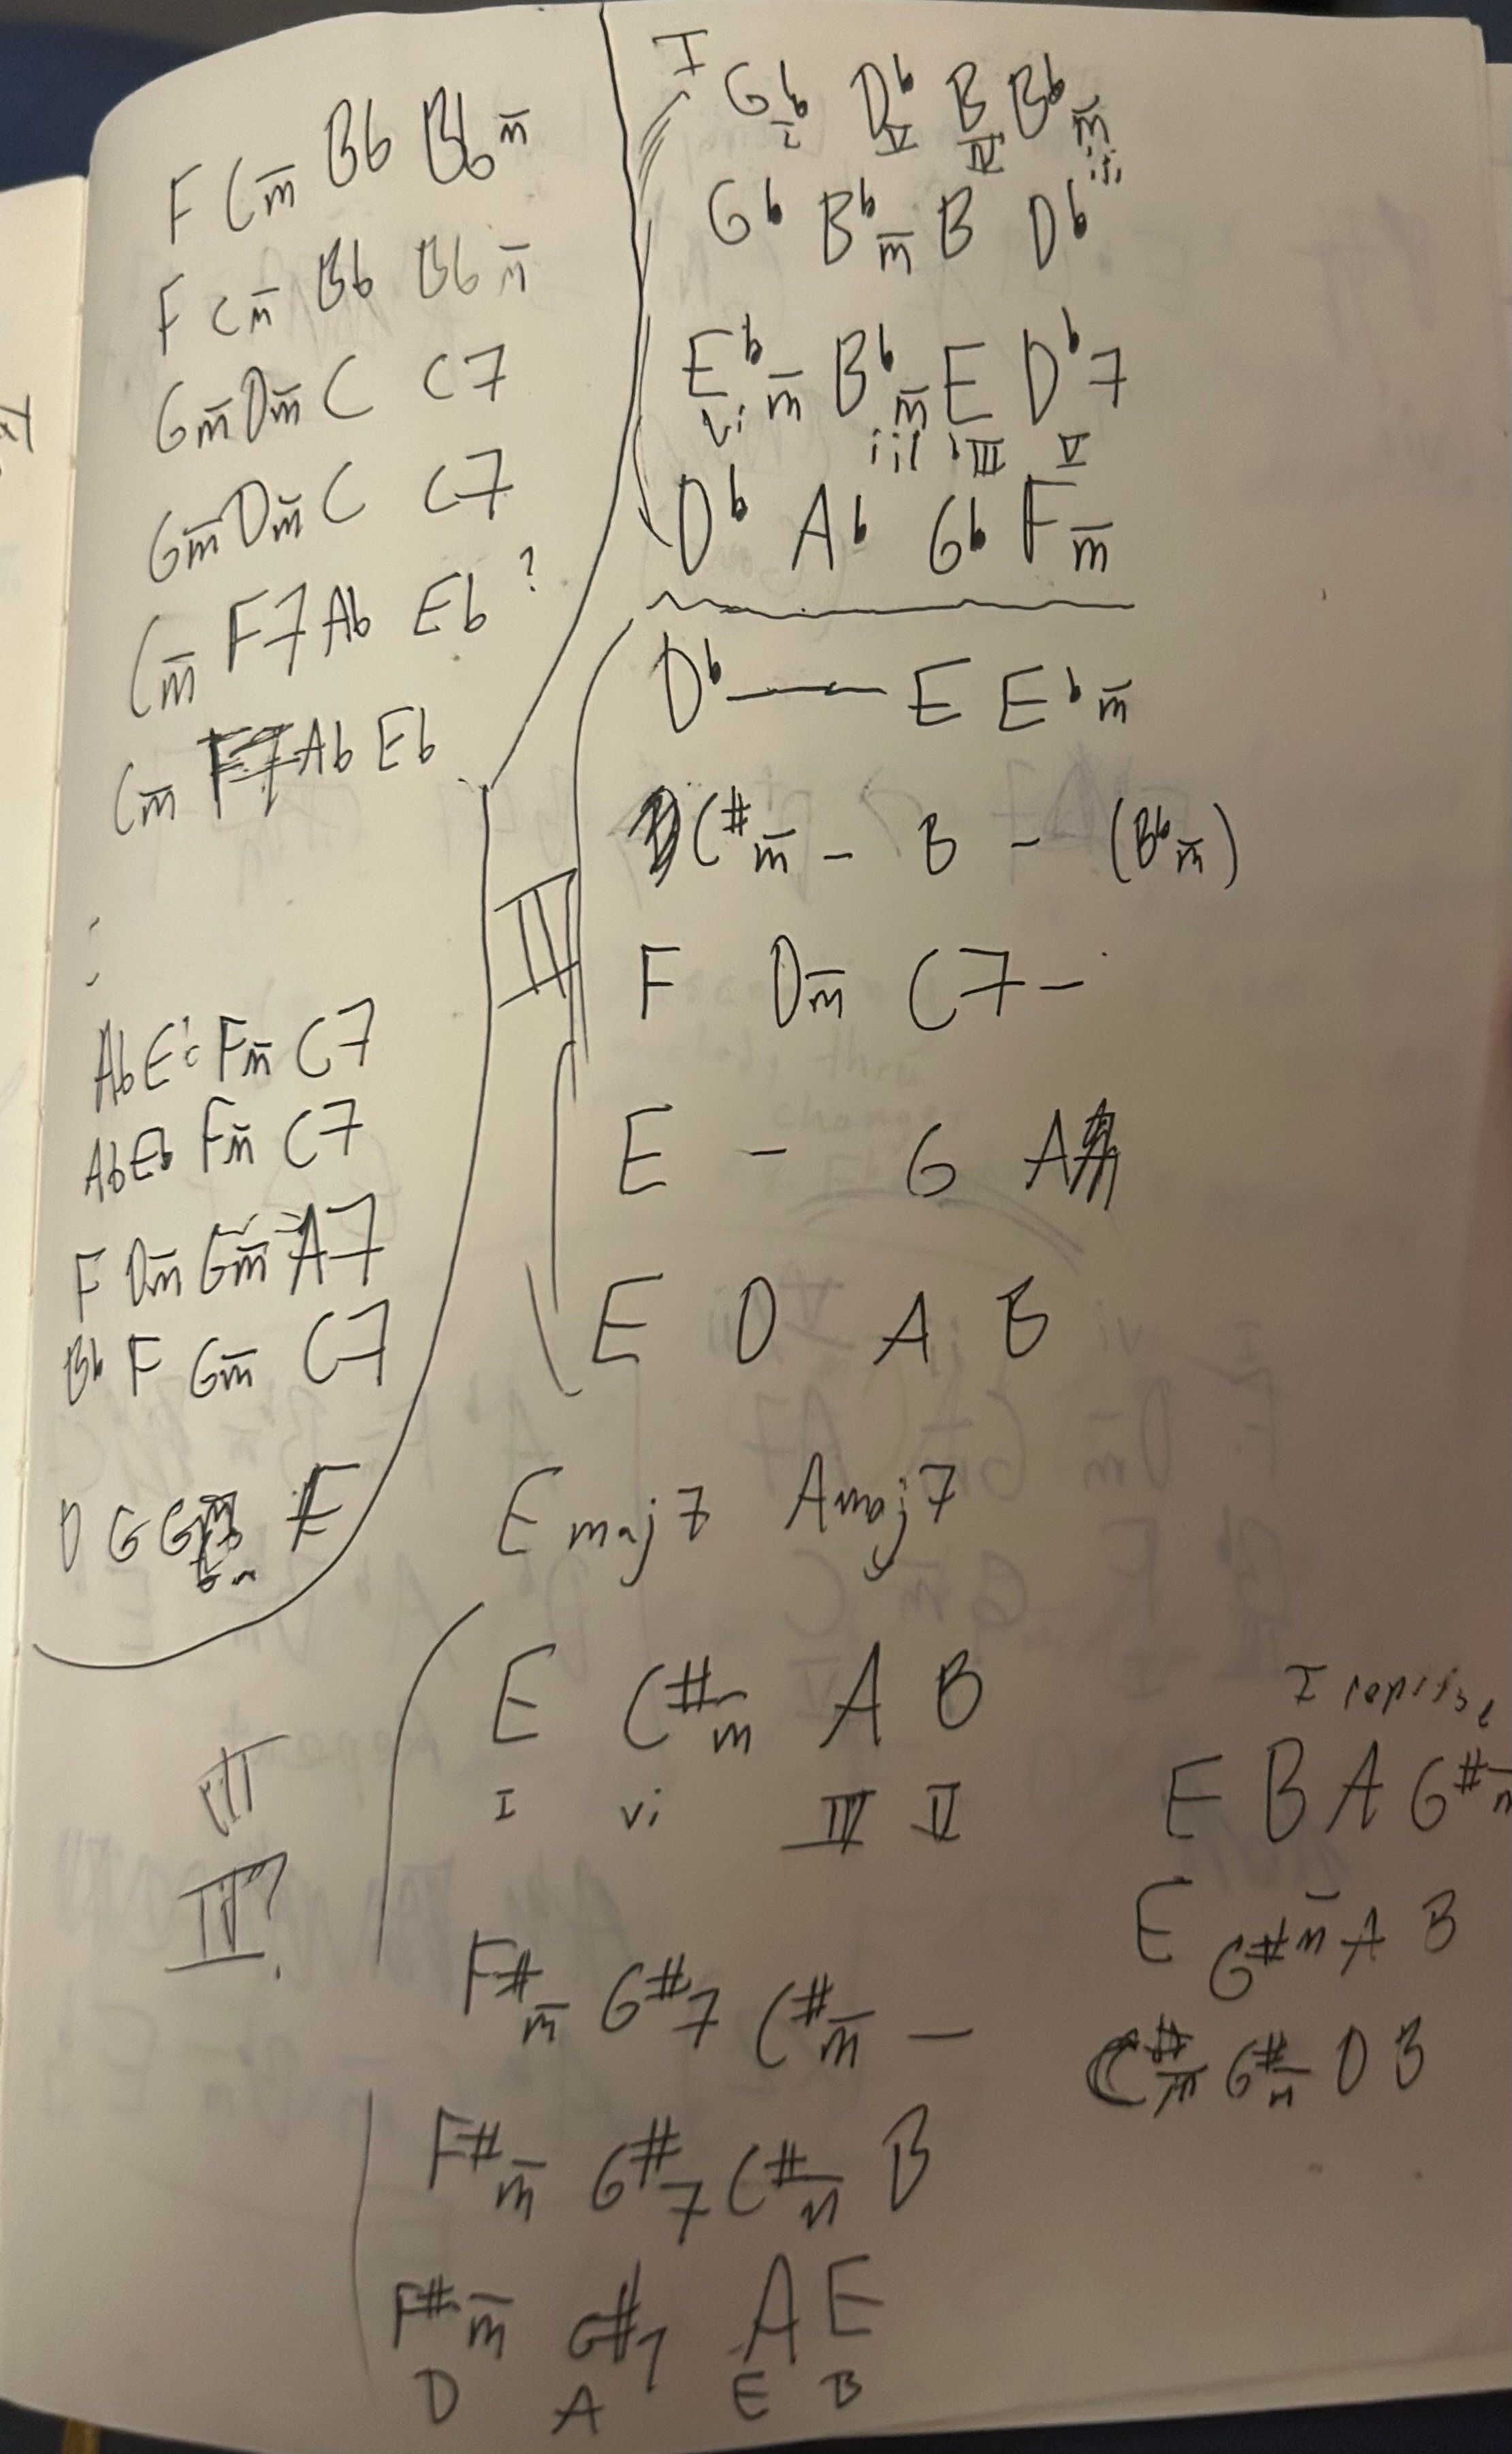 F Cm Bb Bbm
F Cm Bb Bbm
Gm Dm C C7
Gm Dm C C7
Cm F7 Ab Eb ?
Cm F7 Ab Eb
Ab Eb Fm C7
Ab Eb Fm C7
F Dm Gm A7
Bb F Gm C7
D G Gm F
I
Gb Db B Bbm
I V IV iii
Gb Bbm B Db
Ebm Bbm E Db7
vi iii bIII V
Db Ab Gb Fm
II
Db — E Ebm
C#m - B - (Bbm)
F Dm C7 -
E - G A
E D A B
Emaj7 Amaj7
III
IV?
E C#m A B
I vi IV V
F#m G#7 C#m —
F#m G#7 C#m B
F#m G#7 A E
D A E B
I reprise
E B A G#m
E G#m A B
C#m G#m D B